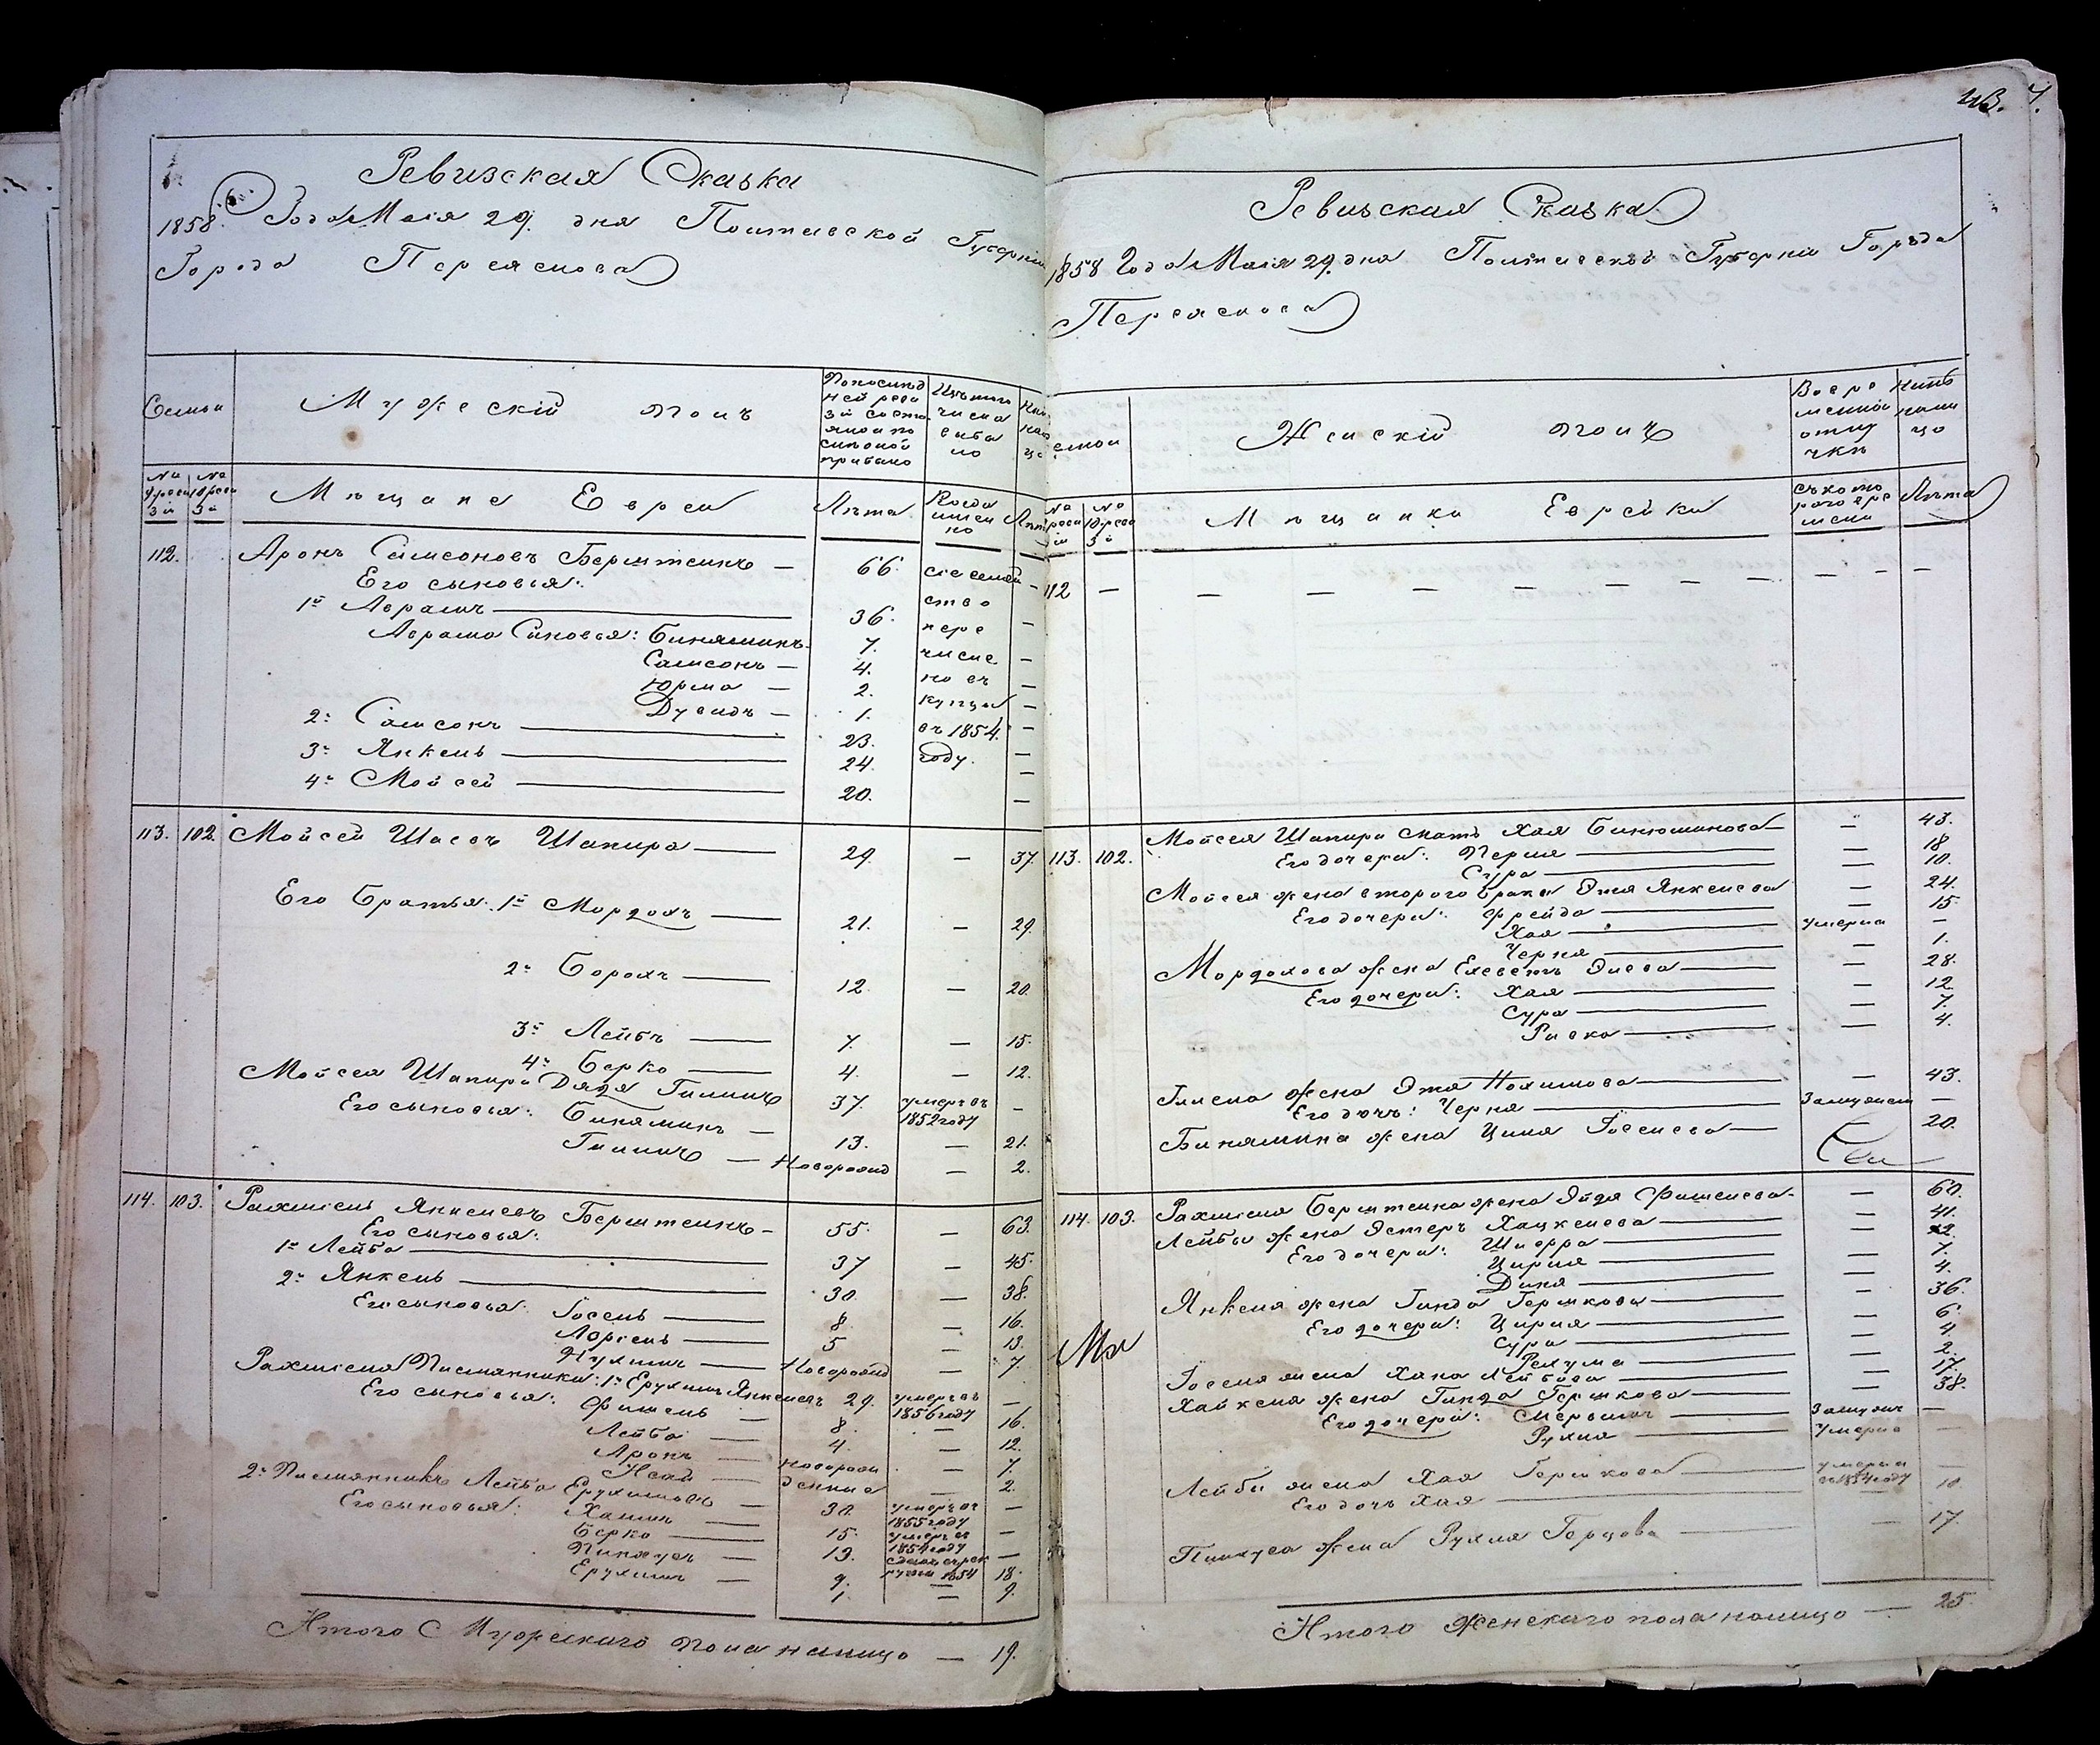 43. 4.
Ревизская Сказка
1858 Года Маія 29. дня Полтавской Губерніи
Города Переяслова
Семьи
Мужескій полъ
По послѣд
ней реви
зіи состо
яло и по
слѣ оной
прибыло
Изъ того
числа
выбы
ло
№ 9 реви
зіи
№ 10 реви
зіи
Мѣщане Евреи
Лѣта
Когда
имен
но
Лѣта
112. Аронъ Самсоновъ Берштеинъ — 66. сіе семей —
Его сыновья: ство
1й Аврамъ — 36. пере —
Аврама Сыновья: Биняминъ 7. числе —
Самсонъ — 4. но въ —
Юрма — 2. купцы —
Дувидъ — 1. въ 1854. —
2й Самсонъ — 23. году. —
3й Янкель — 24. —
4й Мойсей — 20. —
113. 102. Мойсей Шаевъ Шапира — 29. — 37.
Его Братья: 1й Мордохъ — 21. — 29.
2й Борохъ — 12. — 20.
3й Лейбъ — 7. — 15.
4й Берко — 4. — 12.
Мойсея Шапиры Дядя Гилилъ 37. умеръ въ 1852 году —
Его сыновья: Биняминъ — 13. — 21.
Гилилъ — Новорожд — 2.
114. 103. Рахміель Янкелевъ Берштеинъ — 55. — 63.
Его сыновья:
1й Лейба — 37 — 45.
2й Янкель — 30. — 38.
Его сыновья: Іосель — 8. — 16.
Лорхель — 5 — 13.
Нухимъ — Новорожд — 7.
Рахміеля Племянники: 1й Ерухимъ Янкелевъ 29. умеръ въ 1856 году —
Его сыновья: Фишель — 8. — 16.
Лейба — 4. — 12.
Аронъ — новорож — 7.
Исай — денные 2.
2й Племянникъ Лейба Ерухимовъ — 30. умеръ въ 1855 году —
Его сыновья: Хаимъ — 15. умеръ въ 1854 году —
Берко — 13. сданъ въ рек руты 1854 —
Пинхусъ — 9. — 18.
Ерухимъ — 1. — 9.
Итого Мужескаго пола налицо — 19.
Ревизская Сказка
1858 Года Маія 29. дня Полтавской Губерніи Города
Переяслова
Семьи
Женскій полъ
Во вре
менной
отлу
чкѣ
Налицо
Мѣщанки Еврейки
съ кото
раго вре
мени
Лѣта
112 — — — — — — — — —
113. 102. Мойсея Шапиры мать Хая Бинюминова — — 43.
Его дочери: Перля — — 18
Сура — — 10.
Мойсея жена втораго брака Этя Янкелева — 24.
Его дочери: Фрейда — — 15
Хая — умерла —
Черня — — 1.
Мордохова жена Елеветъ Элева — — 28.
Его дочери: Хая — — 12
Сура — — 7.
Ривка — — 4.
Гилела жена Этя Нахимова — — 43.
Его дочь: Черня — Замужемъ —
Бинямина жена Циля Іоселева — — 20.
114. 103. Рахміеля Берштеина жена Эйдя Фишелева — — 60.
Лейбы жена Эстеръ Хацкелева — — 41.
Его дочери: Шифра — — 12.
Цирля — — 7.
Дина — — 4.
Янкеля жена Гинда Гершкова — — 36.
Его дочери: Цирля — — 6.
Сура — — 4.
Рехума — — 2.
Іоселя жена Хана Лейбова — — 17.
Хаикеля жена Гинда Гершкова — — 38.
Его дочери: Мервишъ — Замужемъ —
Рухля — умерла —
Лейбы жена Хая Гершкова — умерла въ 1854 году —
Его дочь Хая — 10.
Пинхуса жена Рухля Герцова — — 17.
Итого Женскаго пола налицо — 25.